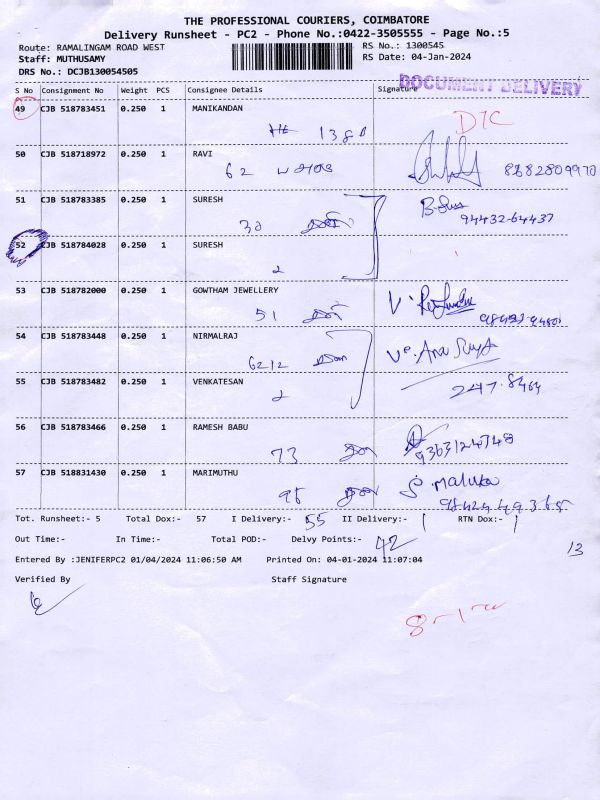 THE PROFESSIONAL COURIERS, COIMBATORE
Delivery Runsheet - PC2 - Phone No.:0422-3505555 - Page No.:5
Route: RAMALINGAM ROAD WEST RS No.: 1300545
Staff: MUTHUSAMY RS Date: 04-Jan-2024
DRS No.: DCJB130054505
DOCUMENT DELIVERY
S No Consignment No Weight PCS Consignee Details Signature
49 CJB 518783451 0.250 1 MANIKANDAN
1380 DTC
50 CJB 518718972 0.250 1 RAVI
62
51 CJB 518783385 0.250 1 SURESH
30 94432-64437
52 CJB 518784028 0.250 1 SURESH
53 CJB 518782000 0.250 1 GOWTHAM JEWELLERY
51
54 CJB 518783448 0.250 1 NIRMALRAJ
6212
55 CJB 518783482 0.250 1 VENKATESAN
247.8464
56 CJB 518783466 0.250 1 RAMESH BABU
73 9363124748
57 CJB 518831430 0.250 1 MARIMUTHU
95
Tot. Runsheet:- 5 Total Dox:- 57 I Delivery:- 55 II Delivery:- 1 RTN Dox:- 1
Out Time:- In Time:- Total POD:- Delvy Points:- 42
13
Entered By :JENIFERPC2 01/04/2024 11:06:50 AM Printed On: 04-01-2024 11:07:04
Verified By Staff Signature